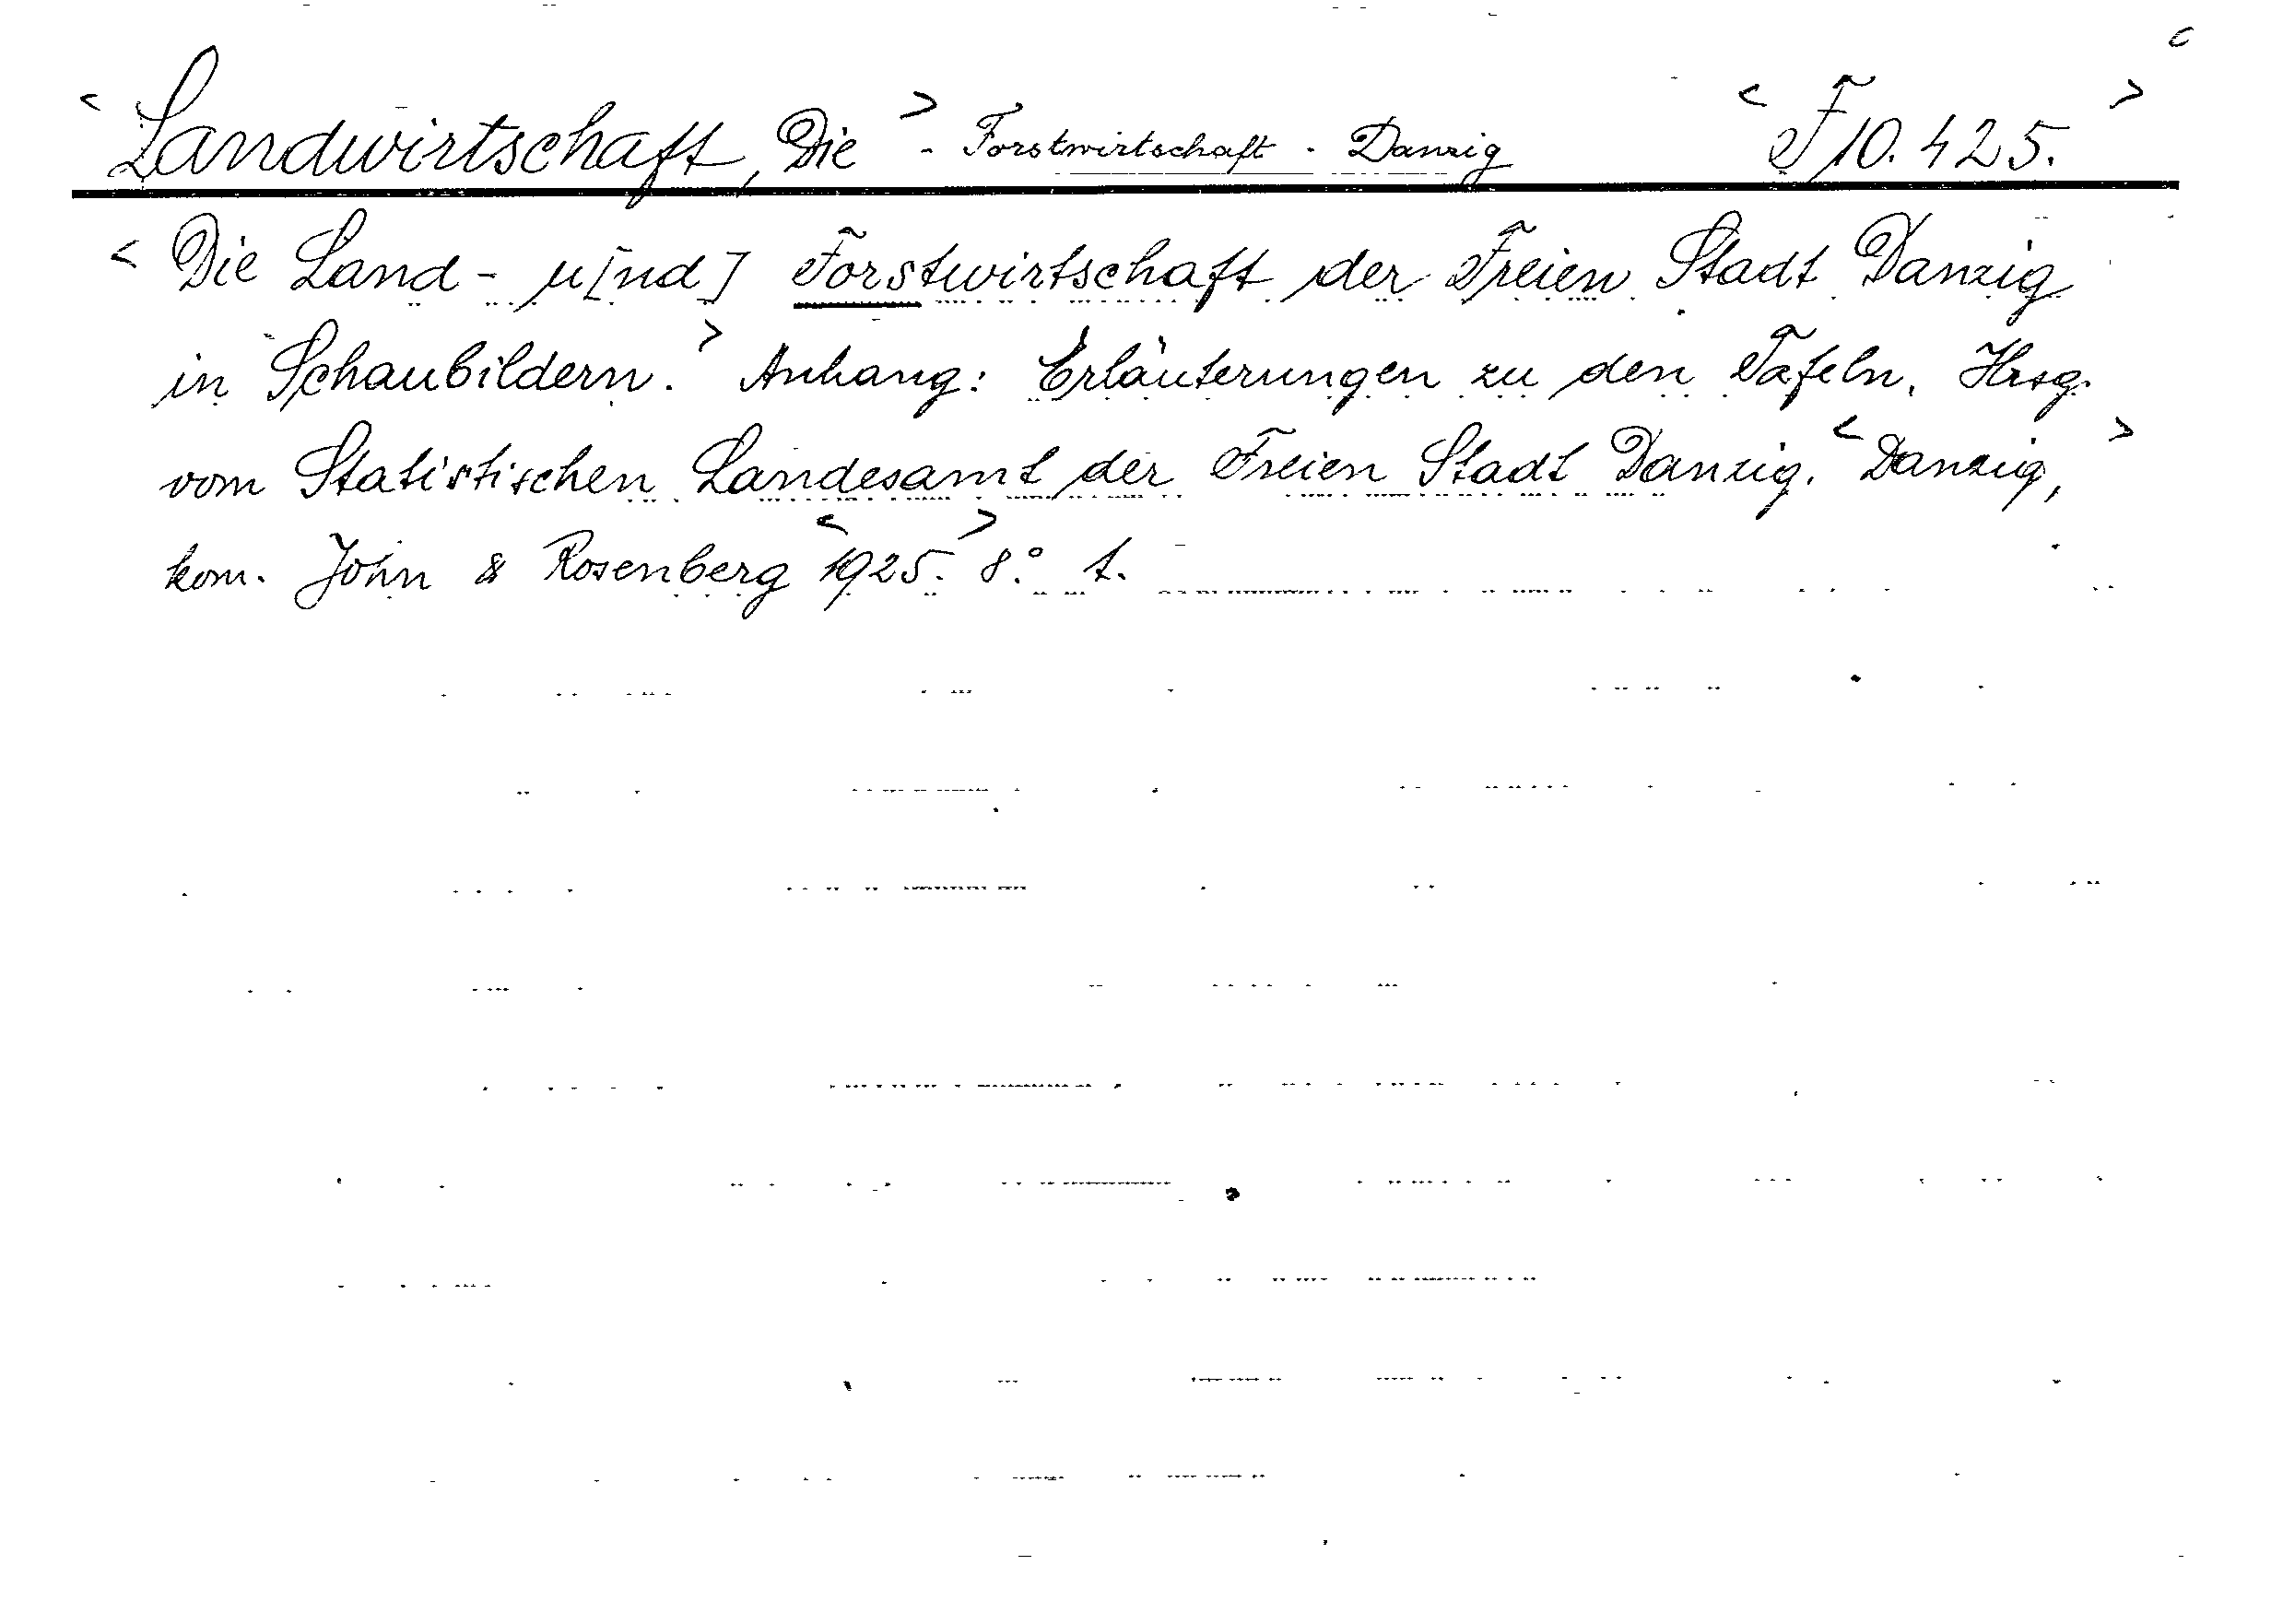 < Landwirtschaft, Die > - Forstwirtschaft - Danzig < F 10.425. >
< Die Land- u[nd] Forstwirtschaft der Freien Stadt Danzig
in Schaubildern. > Anhang: Erläuterungen zu den Tafeln. Hrsg.
vom Statistischen Landesamt der Freien Stadt Danzig. < Danzig, >
kom. John & Rosenberg < 1925. > 8.°